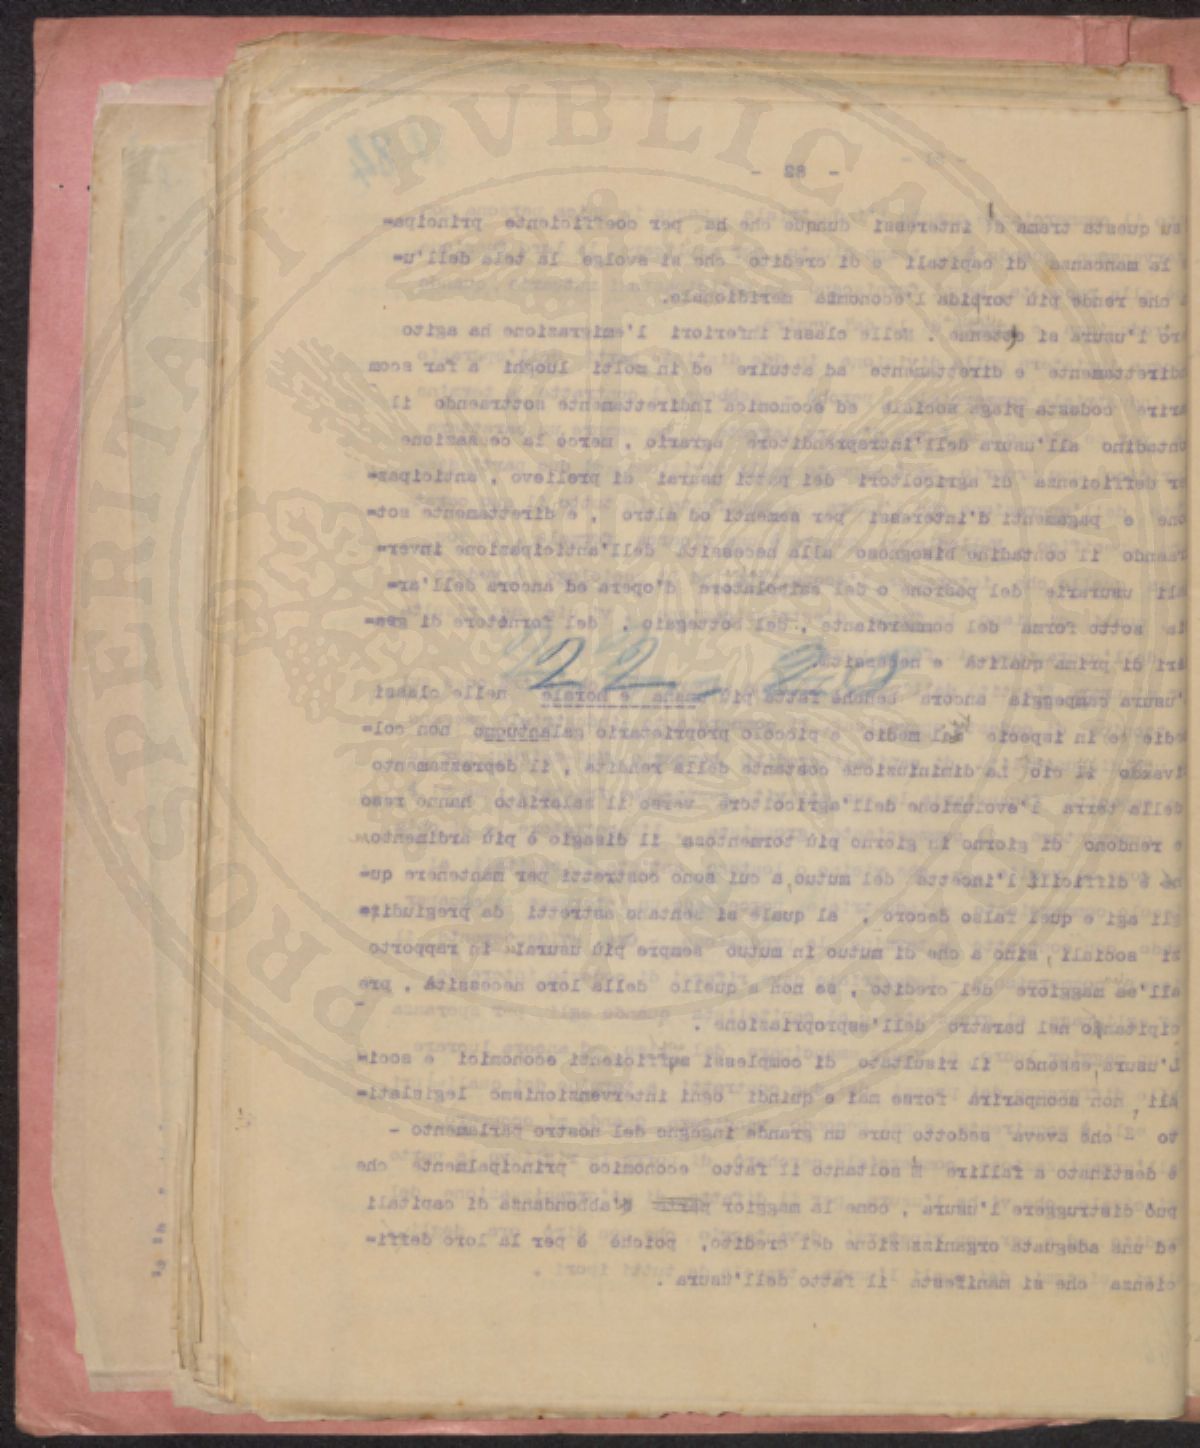 PROSPERITATI PVBLICAE
- 82 -
su questa trama di interessi dunque che ha per coefficiente principa-
la mancanza di capitali e di credito che si svolge la tela dell'u-
che rende più torpida l'economia meridionale.
l'usura si estense. Nelle classi inferiori l'emigrazione ha agito
indirettamente e direttamente ad attuire ed in molti luoghi a far scom
parire codesta piaga sociale ed economica Indirettamente sottraendo il
contadino all'usura dell'intreprenditore agrario, mercè la cessazione
per defficienza di agricoltori dei patti usurai di prelievo, anticipaz-
ione e pagamenti d'interessi per sementi od altro, e direttamente sot-
traendo il contadino bisognoso alla necessità dell'anticipazione inver-
nali usurarie del padrone o del d'opera ed ancora dell'ar-
sotto forma del commerciante, del bottegaio, del fornitore di gen-
eri di prima qualità e necessità.
22 - 2
l'usura campeggia ancora benchè fatta più umana e morale nelle classi
medie ed in ispecie nel medio e piccolo proprietario galantuomo non col-
tivando il ciò. La diminiuzione costante della rendita, il deprezzamento
della terra l'evoluzione dell'agricoltore verso il salariato hanno reso
e rendono di giorno in giorno più tormentosa il disagio e più ardimento-
e difficili l'incetta del mutuo, a cui sono costretti per mantenere que-
gli agi e quel falso decoro, al quale si sentano astretti da pregiudiz-
zi sociali, sino a che di mutuo in mutuo sempre più usurale in rapporto
all'sa maggiore del credito, se non a quello della loro necessità, pre
cipitano nel baratro dell'espropriazione.
L'usura, essendo il risultato di complessi sufficienti economici e soci-
ali, non scomparirà forse mai e quindi ogni intervenzionismo legislati-
to - che aveva sedotto pure un grande ingegno del nostro parlamento -
è destinato a fallire E soltanto il fatto economico principalmente che
può distruggere l'usura, come la maggior parte d'abbondanza di capitali
ed una adeguata organizzazione del credito, poichè è per la loro deffi-
cienza che si manifesta il fatto dell'usura.